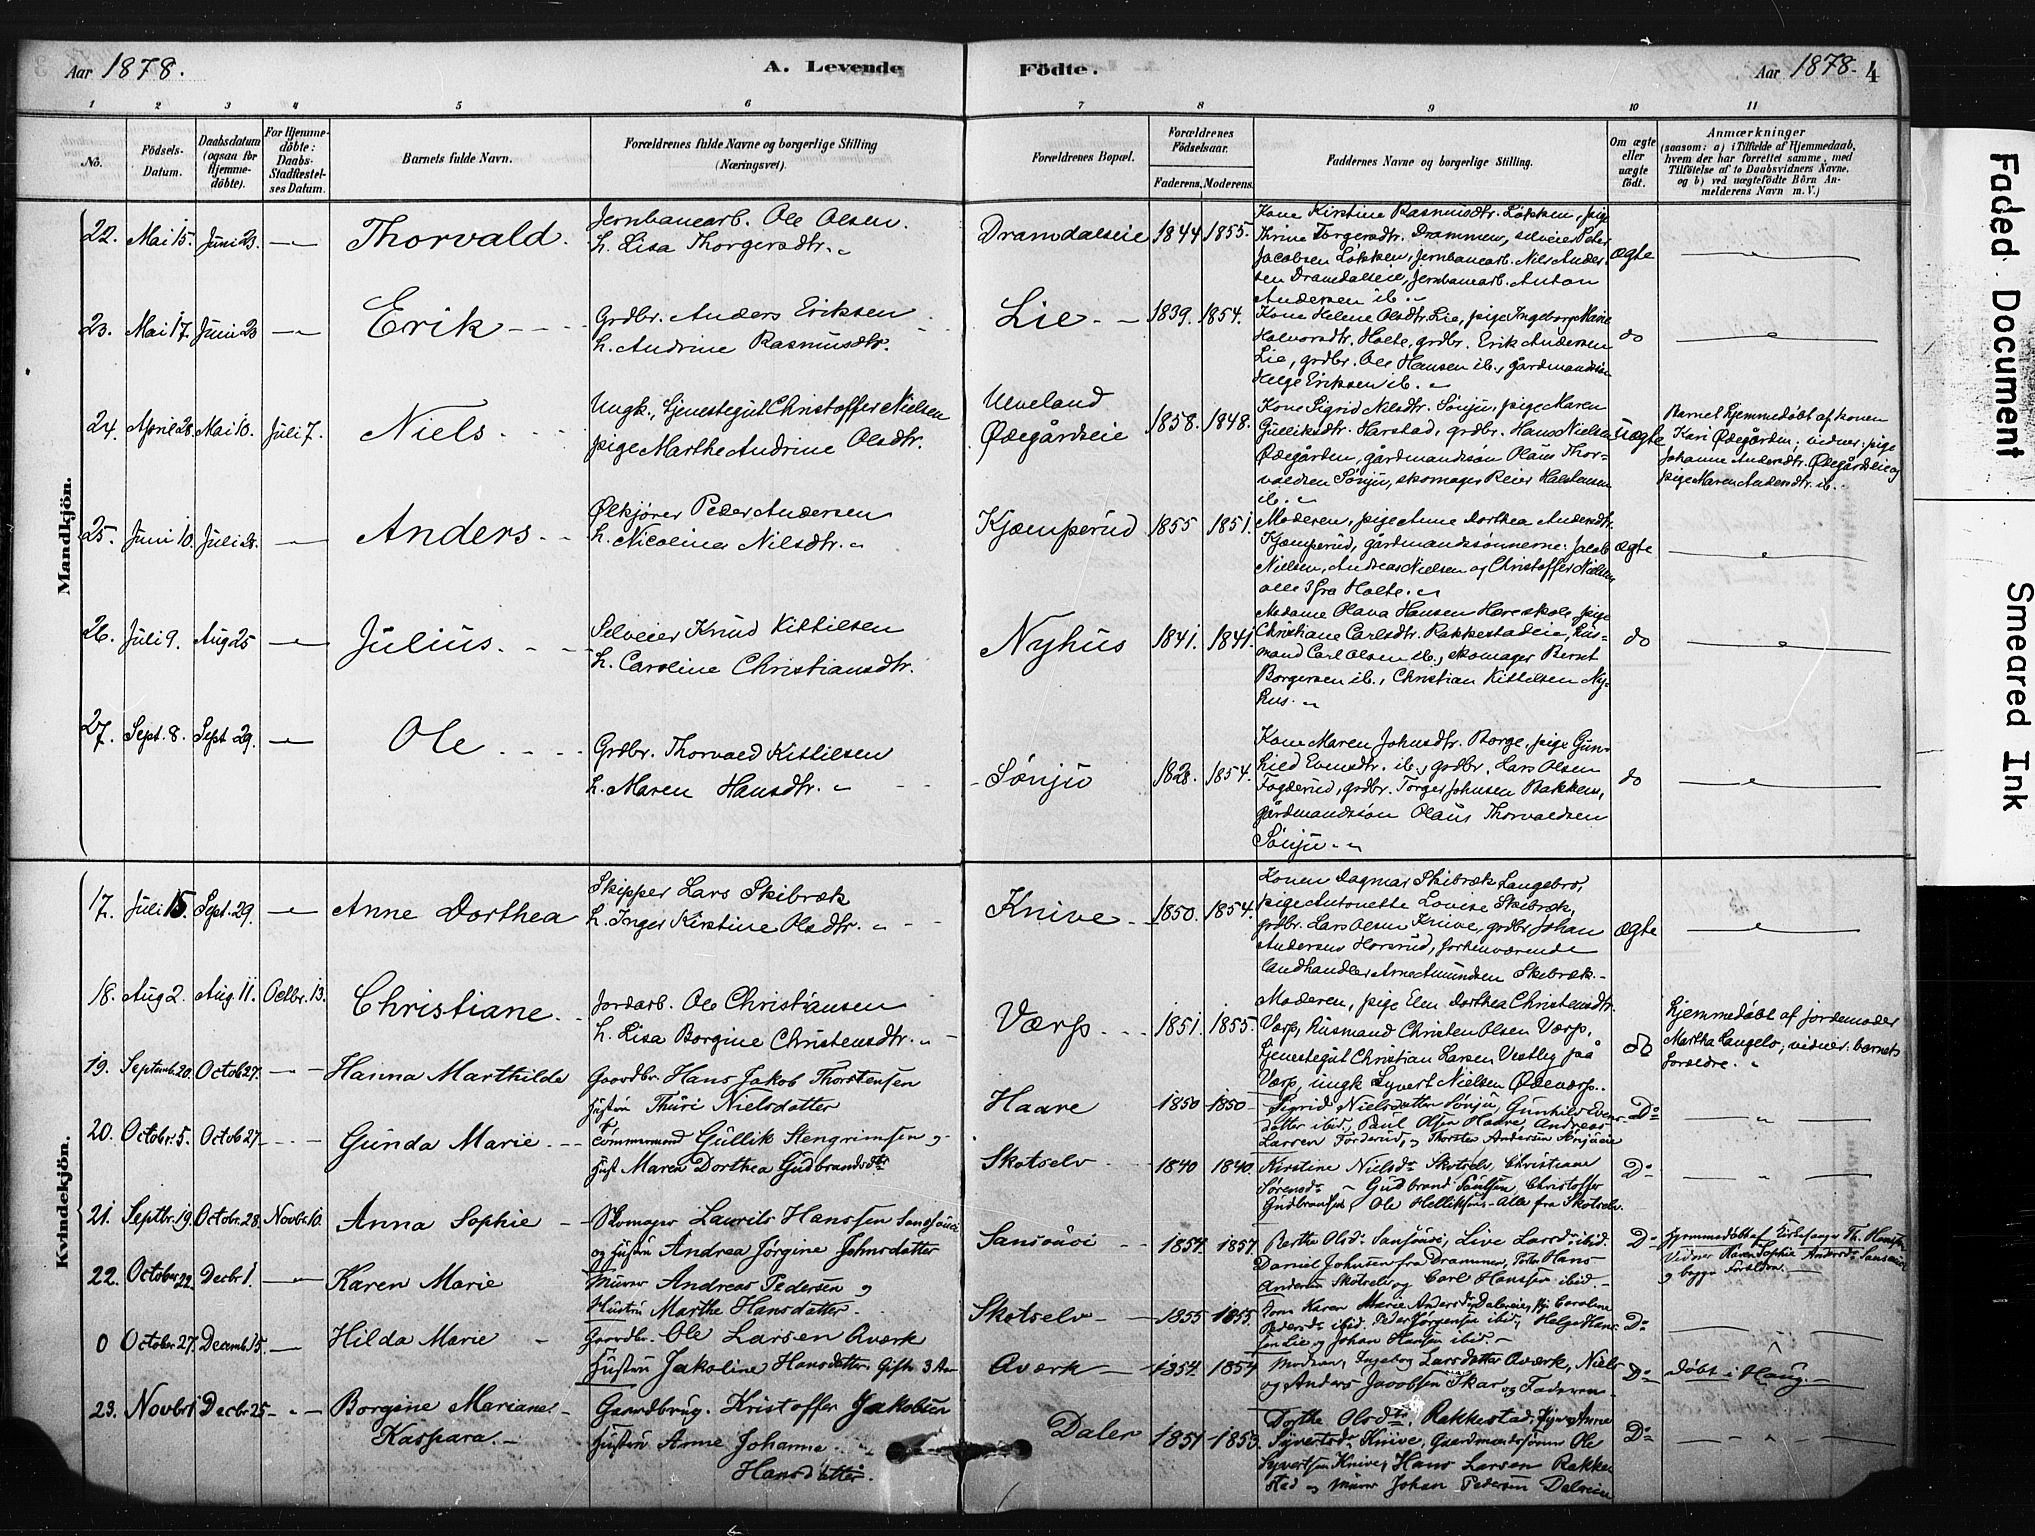 Aar 1878. A. Levende Födte. Aar 1878. 4
1 2 3 4 5 6 7 8 9 10 11
No.
Födsels-Datum.
Daabsdatum (ogsaa for Hjemmedöbte).
For Hjemmedöbte: Daabs-Stadfæstelses Datum.
Barnets fulde Navn.
Forældrenes fulde Navne og borgerlige Stilling (Næringsvei).
Forældrenes Bopæl.
Forældrenes Födselsaar.
Faderens. Moderens.
Faddernes Navne og borgerlige Stilling.
Om ægte eller uægte födt.
Anmærkninger
(saasom: a) i Tilfælde af Hjemmedaab,
hvem der har forrettet samme, med
Tilföielse af to Daabsvidners Navne,
og b) ved uægtefödte Börn Anmelderens Navn m. V.)
Mandkjön.
22. Mai 15. Juni 23. — Thorvald.
Jernbanearb. Ole Olsen.
h. Lisa Thorgersdtr. „
Dramdalseie 1844 1855.
Kone Kirstine Rasmusdtr. Løkken, pige
Thrine Torgersdtr. Drammen, selveier Peter
Jacobsen Løkken, jernbanearb. Nils Ander-
sen Dramdalseie, jernbanearb. Anton
Andersen ib. „
ægte
23. Mai 17. Juni 23 — Erik
Grdbr. Anders Eriksen
h. Andrine Rasmusdtr.
Lie. 1839. 1854.
Kone Helene Olsdtr. Lie, pige Ingeborg Marie
Halvorsdtr. Holte, grdbr. Erik Andersen
Lie, grdbr. Ole Hansen ib., gårdmandssøn
Helge Eriksen ib. „
do
24. April 28. Mai 10. Juli 7. Niels
Ungk., tjenestegut Christoffer Nielsen
pige Marthe Andrine Olsdtr.
Ulveland
Ødegårdseie 1858. 1848.
Kone Sigrid Nilsdtr. Sønju, pige Maren
Gulliksdtr. Harstad, grdbr. Hans Nielsen
Ødegården, gårdmandssøn Olaus Thor-
valdsen Sønju, skomager Reier Halstensen
ib. „
uægte
Barnet hjemmedøbt af konen
Kari Ødegården; vidner: pige
Johanne Andersdtr. Ødegårdseie og
pige Maren Andersdtr. ib. „
25. Juni 10. Juli 28. — Anders
Ølkjører Peder Andersen
h. Nicolina Nilsdtr. „
Kjæmperud 1855 1851.
Moderen, pige Anne Dorthea Andersdtr.
Kjæmperud, gårdmandssønnerne: Jacob
Nielsen, Andreas Nielsen og Christoffer Nielsen
alle 3 fra Holte. „
ægte
26. Juli 9. Aug 25 — Julius.
Selveier Knud Kittilsen
h. Caroline Christiansdtr.
Nyhus 1841. 1841.
Madame Olava Hansen Høreskole, pige
Christiane Carlsdtr. Rakkestadeie, hus-
mand Carl Olsen ib., skomager Bernt
Borgersen ib., Christian Kittilsen Ny-
hus. „
do
27. Sept. 8. Sept 29. — Ole
Grdbr. Thorvald Kittilsen
h. Maren Hansdtr. „
Sønju 1828. 1854.
Kone Maren Johnsdtr. Borge, pige Gun-
hild Evensdtr. ib., grdbr. Lars Olsen
Fogderud, grdbr. Torger Johnsen Bakken,
gårdmandssøn Olaus Thorvaldsen
Sønju. „
do
Kvindekjön.
17. Juli 15. Sept. 29. — Anne Dorthea
Skipper Lars Skibræk
h. Inger Kirstine Olsdtr. „
Knive 1850. 1854.
Konen Dagmar Skibræk Langebro,
pige Antonette Lovise Skibræk,
grdbr. Lars Olsen Knive, grdbr Johan
Andersen Horsrud, forhenværende
landhandler Arne Amundsen Skibræk.
ægte
18. Aug 2. Aug. 11. Octbr. 13. Christiane
Jordarb. Ole Christiansen
h. Lisa Borgine Christensdtr. „
Værp. 1851. 1855.
Moderen, pige Elen Dorthea Christensdtr.
Værp, husmand Christen Olsen Værp,
tjenestegut Christian Larsen Vestby paa
Værp, ungk Syvert Nielsen Ødeværp.
do
Hjemmedøbt af jordemoder
Martha Langelo; vidner: barnets
forældre. „
19. Septemb. 20. Octob 27. Hanna Marthilde
Gaardbr. Hans Jakob Thorstensen
Hustru Thuri Nielsdatter
Haare 1850 1850
Sigrid Nielsdatter Sønju, Gunhild Evens-
datter ibid, Paul Olsen Haare, Andreas
Larsen Forderud, og Thorsten Andersen Sønjueie
Do
20. Octobr. 5. Octob 27 Gunda Marie
Tømmermand Gullik Stengrimsen og
Hust Maren Dorthea Gudbrandsdtr
Skotselv 1840 1840.
Kirstine Nielsdr Skotselv, Christiane
Sørensdr Gudbrand Paulsen, Christoffer
Gudbransen, Ole Helliksen. Alle fra Skotselv.
Do
21. Septbr. 19. Octobr. 28. Novbr. 10. Anna Sophie
Skomager Laurits Hanssen Sansouci
og Hustru Andrea Jørgine Johnsdatter
Sansouci 1857 1857.
Berthe Olsdr Sansouci, Live Larsdr ibid.
Daniel Johnsen fra Drammen, Peter Hans
Andersen Skotselv og Carl Hanssen ibid
Do
Hjemmedøbt af Kirkesanger Th. Hansen
Vidner Karen Sophie Andersdr Sansouci
og begge Forældre.
22. October 22. Decbr 1. — Karen Marie
Murer Andreas Pedersen og
Hustru Marthe Hansdatter.
Skotselv 1855 1855.
Karen Marie Andersdr Dalereie, Caroline
Pedersdr ibid. Peder Jørgensen ibid, Helge Hans-
sen Lie og Johan Hansen ibid.
Do
0 October 27. Decemb. 15. — Hilda Marie
Gaardbr. Ole Larsen Aværk
Hustru Jakoline Hansdatter. Gift 3 Aar
Aværk 1854 1854
Moderen, Ingeborg Larsdatter Aværk, Niels
og Anders Jacobsen Skar og Faderen
Do
Døbt i Haug.
23. Novbr 1 Decbr 25 Borgine Mariane
Kaspara.
Gaardbrug. Kristoffer Jakobsen
Hustru Anne Johanne
Hansdatter.
Daler 1851 1853
Dorthe Olsdtr. Rakkestad, Anne
Syvertsdr Knive, Gaardmandssønner Ole
Syvertsen Knive, Hans Larsen Rakke-
stad og Murer Johan Pedersen Dalereie
Do
Faded Document
Smeared Ink